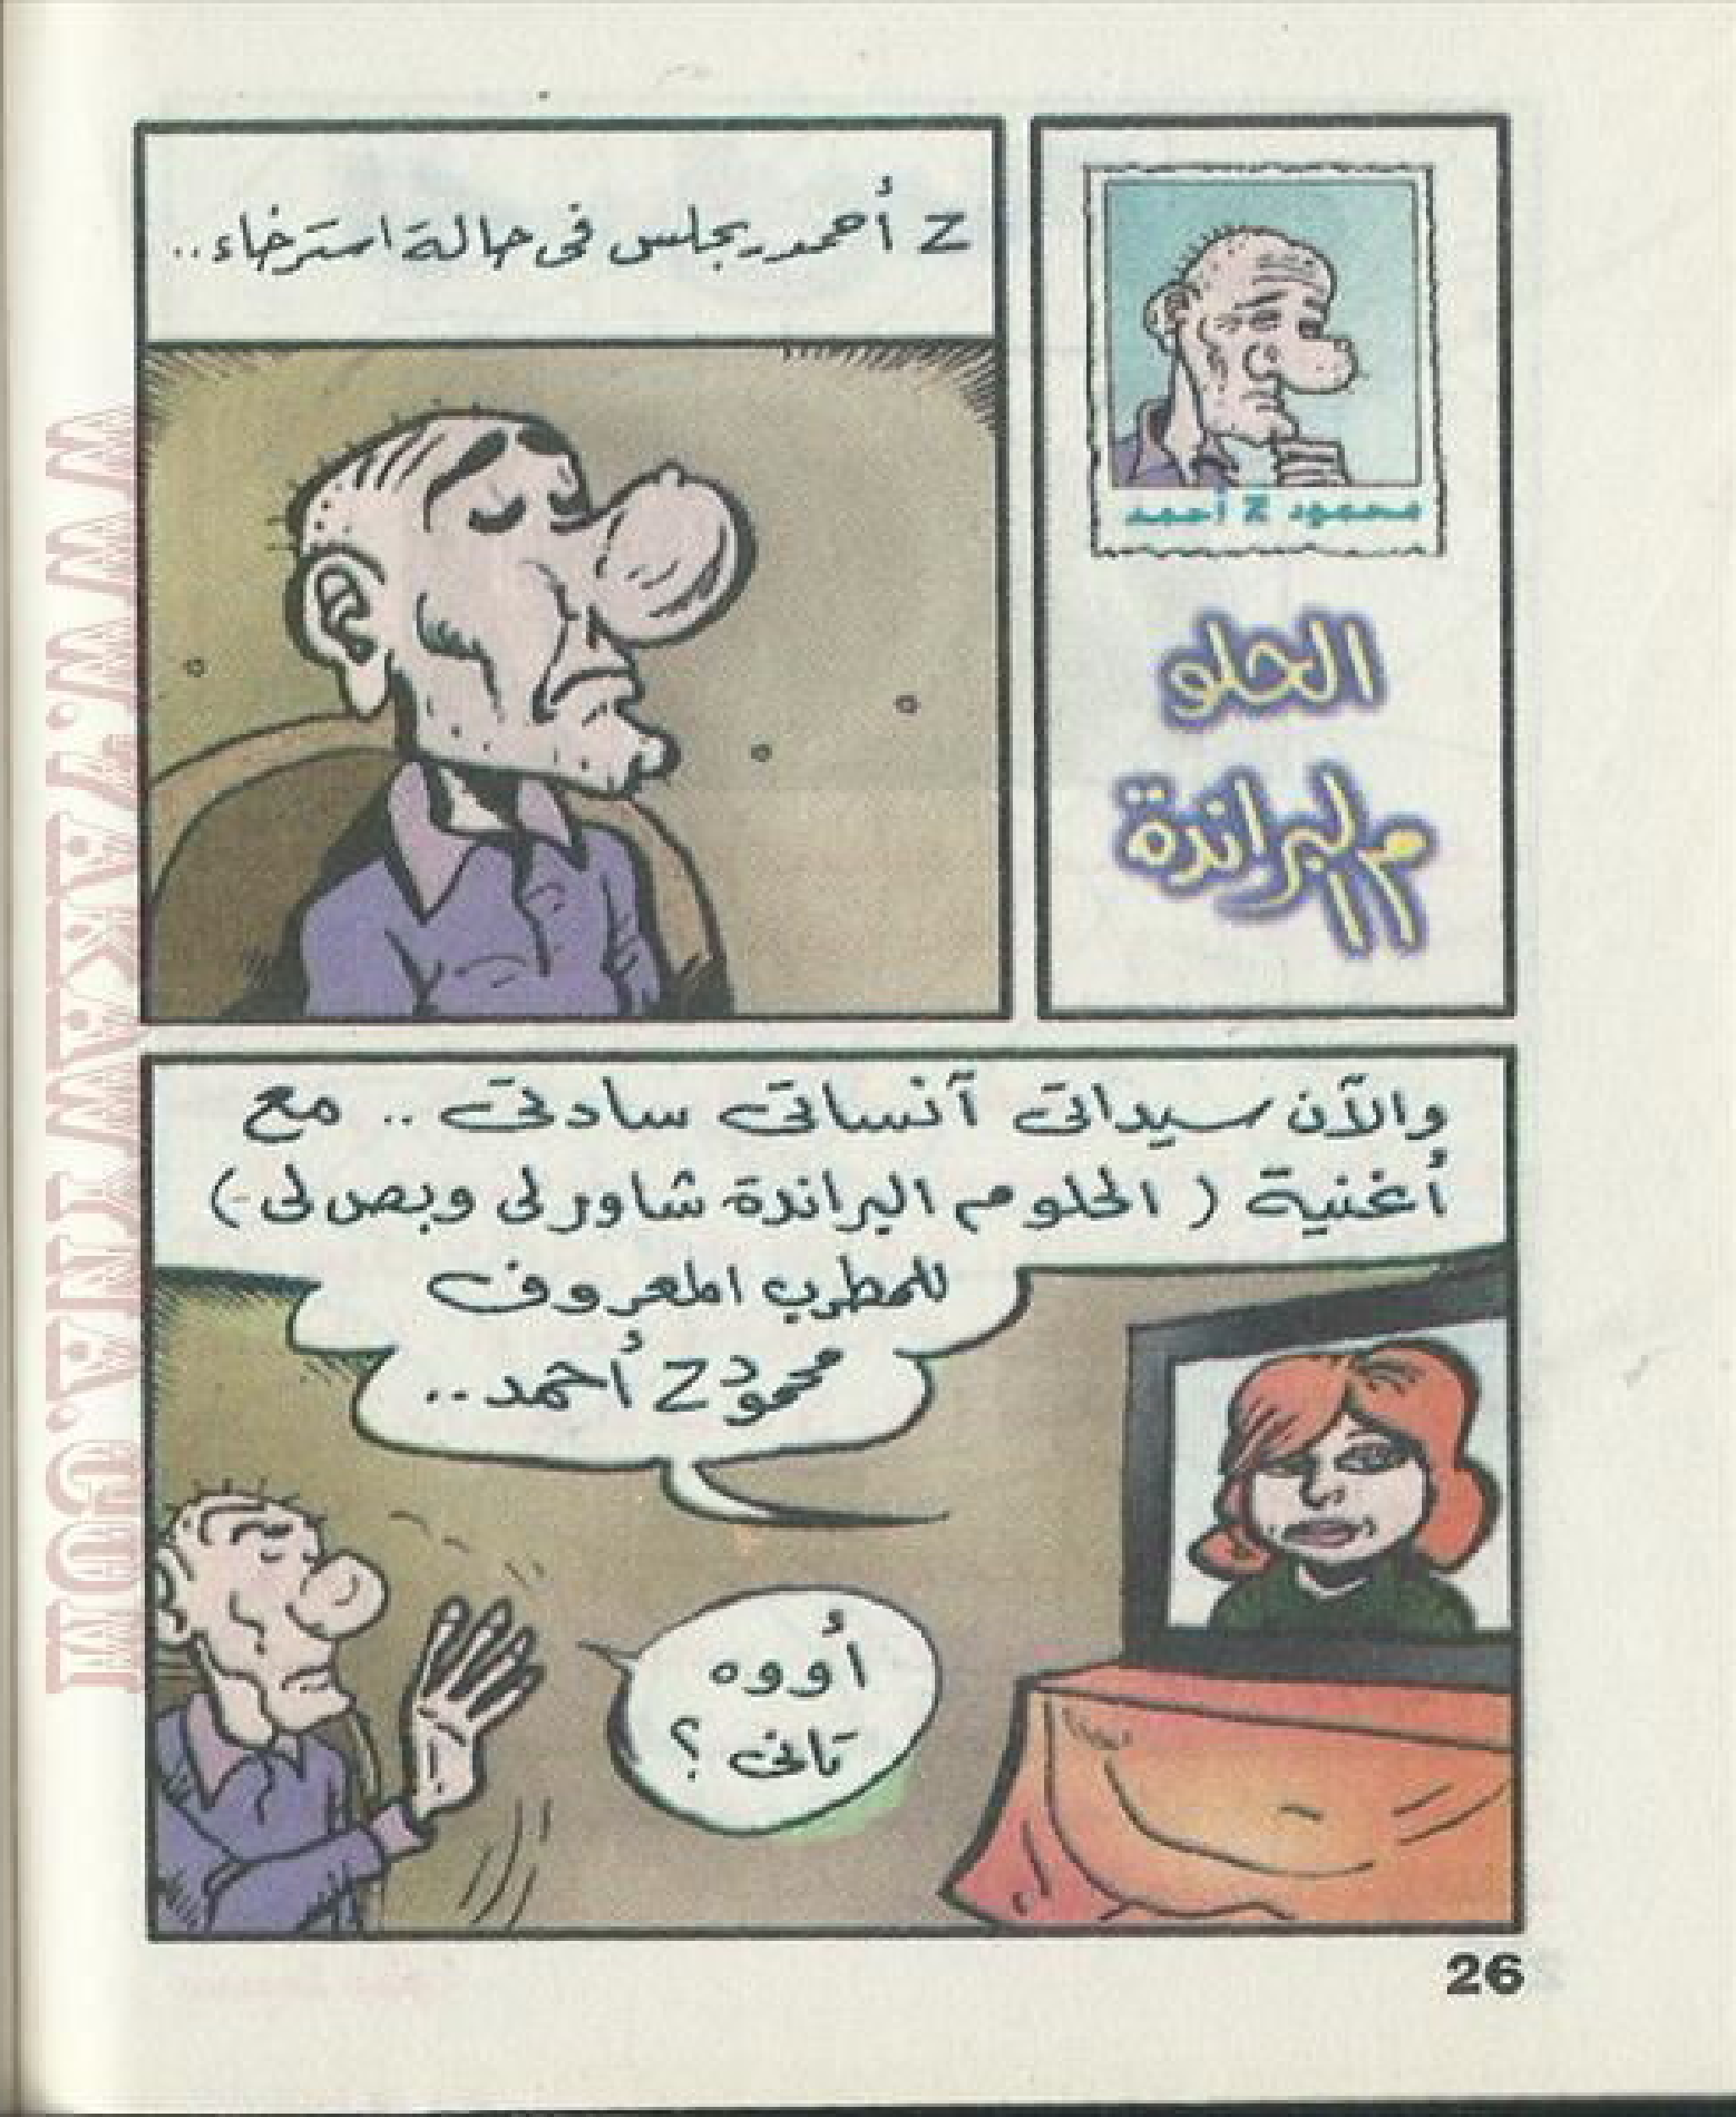 محمود Z أحمد
الحلو
م البراندة
Z أحمد يجلس فى حالة استرخاء..
والآن سيداتى آنساتى سادتى .. مع
أغنية ( الحلو م البراندة شاورلى وبصلى )
للمطرب المعروف
محمود Z أحمد ..
أووه
تانى ؟
26